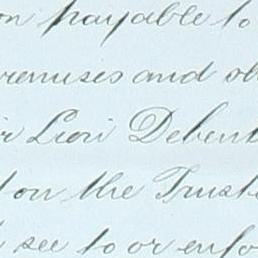 on payable to
remises and ob
ir Lien Debent
t on the Trust
see to or enfo